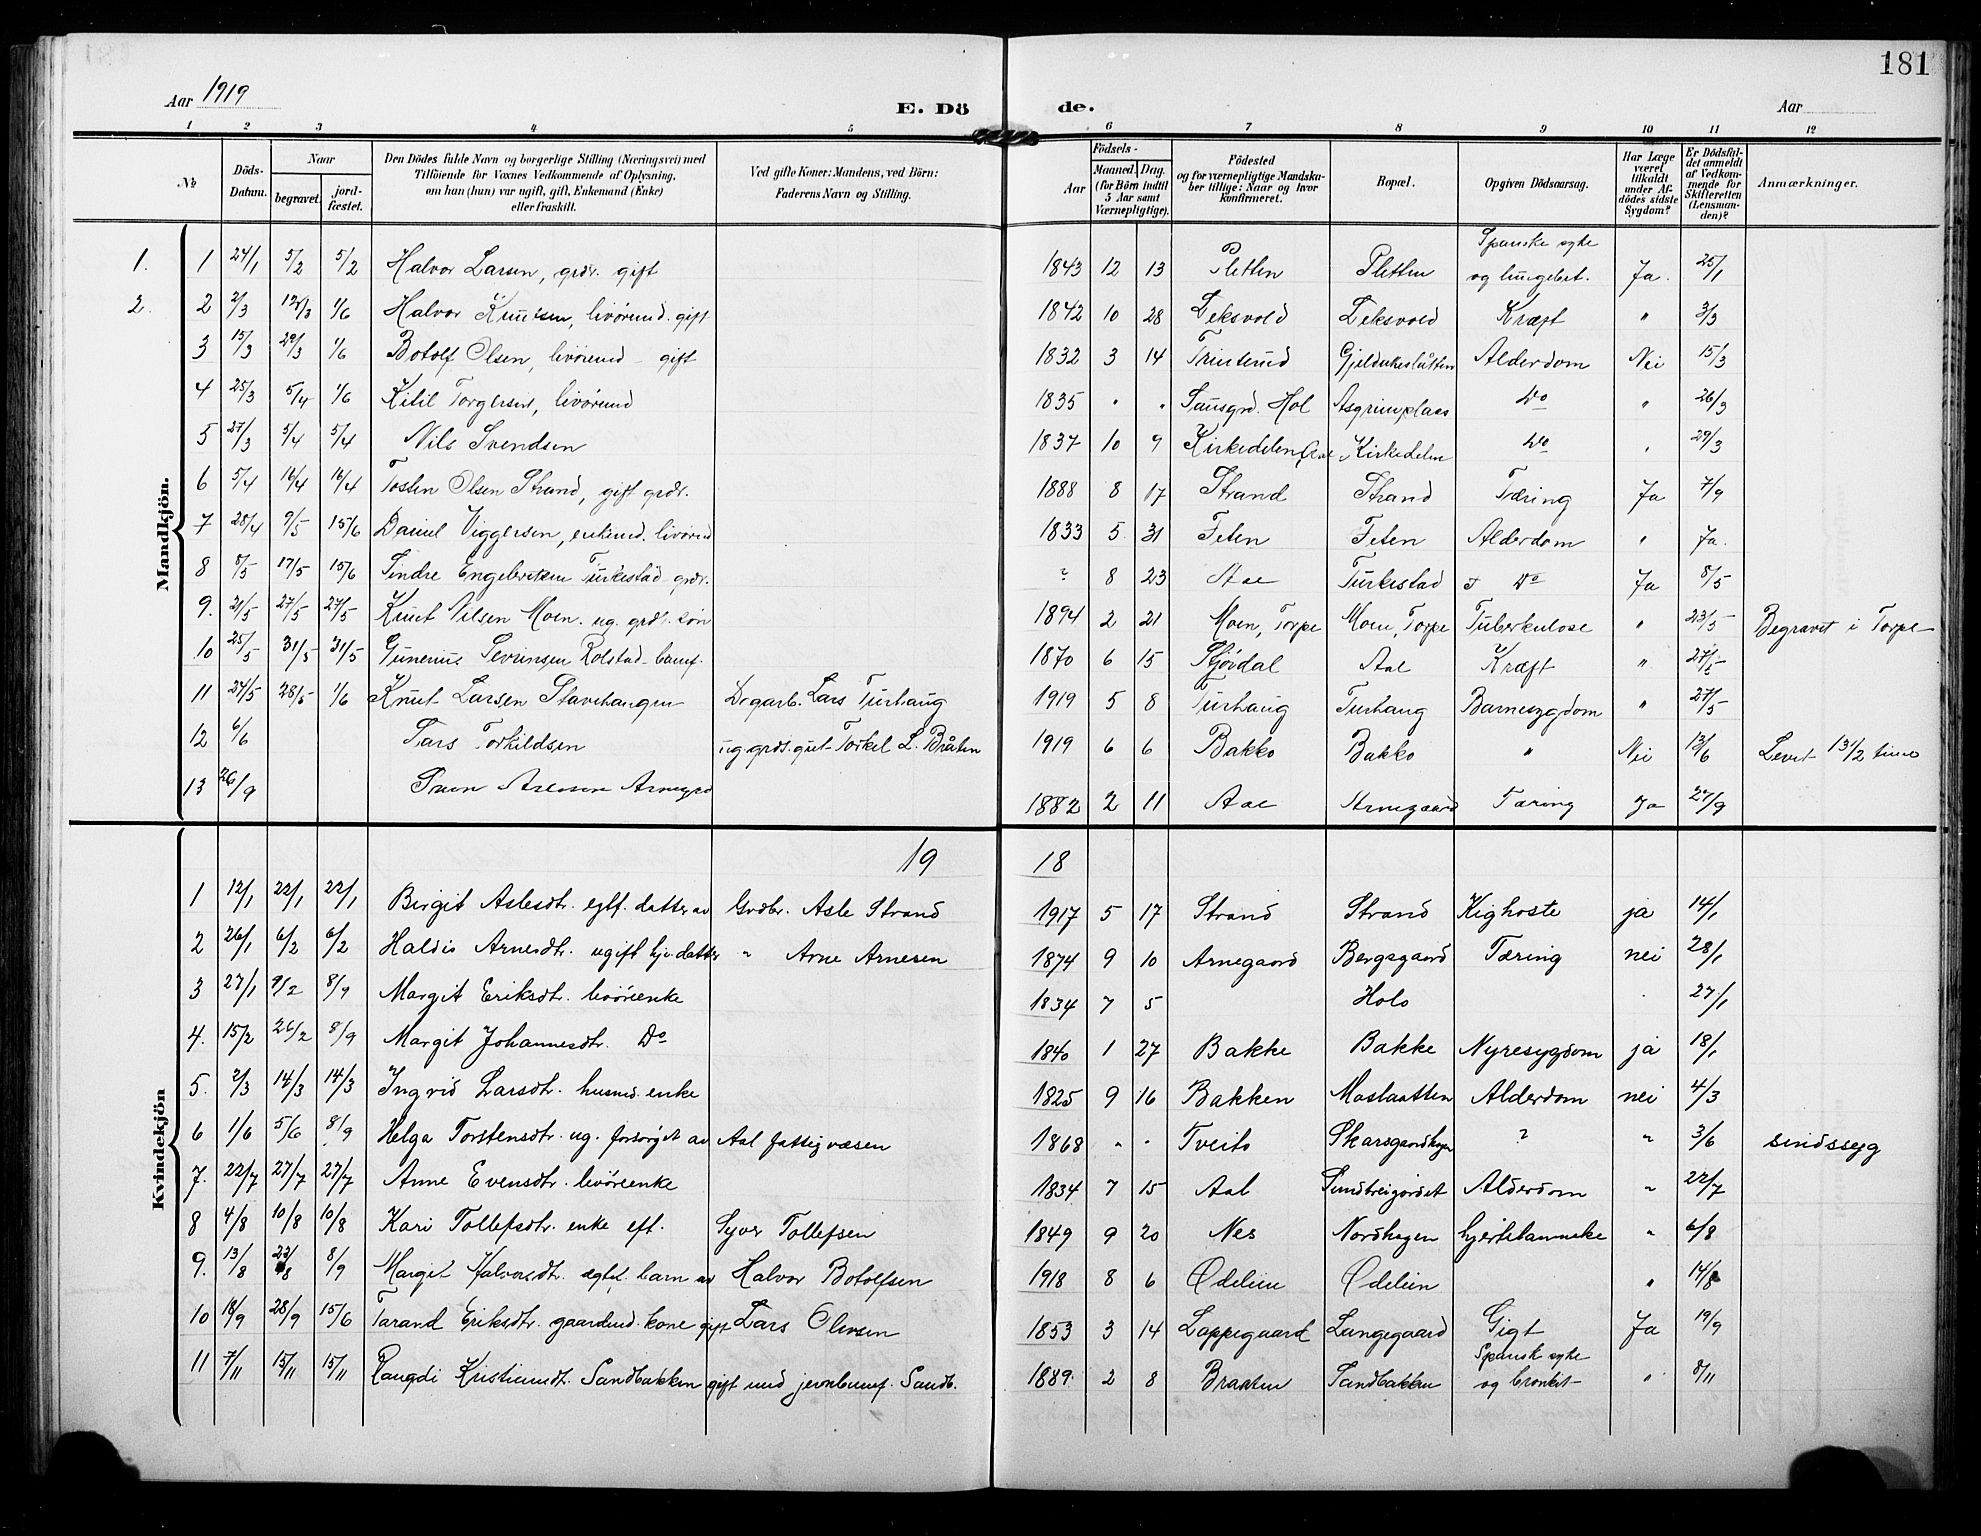 181
Aar 1919
E. Dö de.
Aar
1 2 3 4 5 6 7 8 9 10 11 12
№
Döds-Datum.
Naar
begravet.
jord-fæstet.
Den Dödes fulde Navn og borgerlige Stilling (Næringsvei) med
Tilföiende for Voxnes Vedkommende af Oplysning,
om han (hun) var ugift, gift, Enkemand (Enke)
eller fraskilt.
Ved gifte Koner: Mandens, ved Börn:
Faderens Navn og Stilling.
Födsels-
Aar
Maaned. Dag.
(for Börn indtil
5 Aar samt
Værnepligtige).
Födested
og for værnepligtige Mandska-
ber tillige: Naar og hvor
konfirmeret.
Bopæl.
Opgiven Dödsaarsag.
Har Læge
været
tilkaldt
under Af-
dödes sidste
Sygdom?
Er Dödsfal-
det anmeldt
af Vedkom-
mende for
Skifteretten
(Lensman-
den)?
Anmærkninger.
Mandkjön.
1. 1 24/1 5/2 5/2 Halvor Larsen, grdr. gift 1843 12 13 Pletten Pletten Spanske syke og lungebet. Ja. 25/1
2. 2 2/3 12/3 1/6 Halvor Knutsen, livörmd. gift 1842 10 28 Leksvold Leksvold Kræft " 3/3
3 15/3 29/3 1/6 Botolf Olsen, livörmd gift 1832 3 14 Trintrud Alderdom Nei 15/3
4 25/3 5/4 1/6 Kitil Torgersen, livörmd 1835 " " Hol Asgrimsplass Do " 26/3
5 27/3 5/4 5/4 Nils Svendsen 1837 10 9 Kirkedelen Kirkedelen Do " 29/3
6 5/4 16/4 16/4 Tosten Olsen Strand, gift grdr. 1888 8 17 Strand Strand Tæring Ja 7/9
7 28/4 9/5 15/6 Daniel Viggersen, enkemd. livörmd 1833 5 31 Feten Feten Alderdom " Ja.
8 8/5 17/5 15/6 Sindre Engebretsen Turkestad grdr. ? 8 23 Aal Turkestad Do Ja 8/5
9. 21/5 27/5 27/5 Knut Nilsen Moen. ug. grdr. sön 1894 2 21 Moen, Torpe Moen, Torpe Tuberkulose " 23/5 Begravet i Torpe
10 25/5 31/5 31/5 Gunerius Sevrinsen Rolstad banef. 1870 6 15 Stjördal Aal Kræft " 27/5
11 24/5 28/5 1/6 Knut Larsen Stavehangen Dgarb. Lars Turhaug 1919 5 8 Turhaug Turhaug Barnesygdom " 27/5
12 6/6 Lars Torkildsen ug. grdr. gut Torkel L. Bråten 1919 6 6 Bakko Bakko " Nei 13/6 Levet 13 1/2 time
13 26/9 Arnegrd 1882 2 11 Aal Arnegaard Tæring Ja 27/9
19 18
Kvindekjön
1 12/1 22/1 22/1 Birgit Aslesdtr. egtf. datter av Grdbr. Asle Strand 1917 5 17 Strand Strand Kighoste ja 14/1
2 26/1 6/2 6/2 Haldis Arnesdtr. ugift hjv. datter " Arne Arnesen 1874 9 10 Arnegaard Bergsgaard Tæring nei 28/1
3 27/1 9/2 8/9 Margit Eriksdtr. livöreenke 1834 7 5 Holo 27/1
4. 15/2 26/2 8/9 Margit Johannesdtr. Do 1840 1 27 Bakke Bakke Nyresygdom ja 18/1
5. 2/3 14/3 14/3 Ingrid Larsdtr. husmd. enke 1825 9 16 Bakken Moslaatten Alderdom nei 4/3
6 1/6 5/6 8/9 Helga Torstensdtr. ug. forsörget av Aal fattigvæsen 1868 " " Tveito Skarsgaardhagen ? " 3/6 sindssyg
7. 22/7 27/7 27/7 Anne Evensdtr. livöreenke 1834 7 15 Aal Sundbreigjordet Alderdom " 22/7
8 4/8 10/8 10/8 Kari Tollefsdtr. enke eft. Syver Tollefsen 1849 9 20 Nes Nordhagen hjertelammelse " 6/8
9. 13/8 23/8 8/9 Margit Halvorsdtr. egtef. barn av Halvor Botolfsen 1918 8 6 Ødelien Ødelien " 14/8
10 18/9 28/9 15/6 Tarand Eriksdtr. gaardmd. kone gift Lars Olevsen 1853 3 14 Lappegaard Langegaard Gigt Ja 19/9
11 7/11 15/11 15/11 Rangdi Kristiansdt. Sandbakken gift med jernbanef. Sandb. 1889 2 8 Braaten Sandbakken Spansk syke og bronkit " 8/11